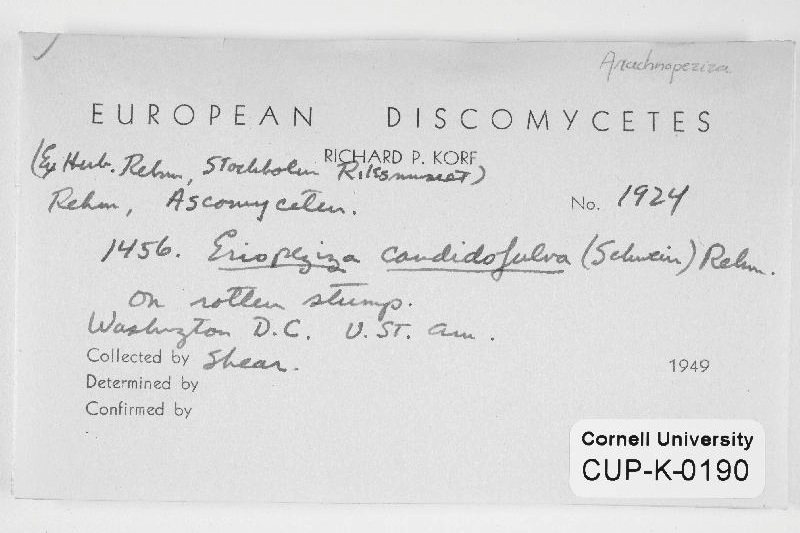 Arachnopeziza
EUROPEAN DISCOMYCETES
RICHARD P. KORF
(Ex Herb. Rehm, Stockholm Riksmuseet)
Rehm, Ascomyceten. No. 1924
1456. Eriopeziza candidofulva (Schwein) Rehm.
On rotten stump.
Washington D.C. U.ST. Am.
Collected by Shear. 1949
Determined by
Confirmed by
Cornell University
CUP-K-0190